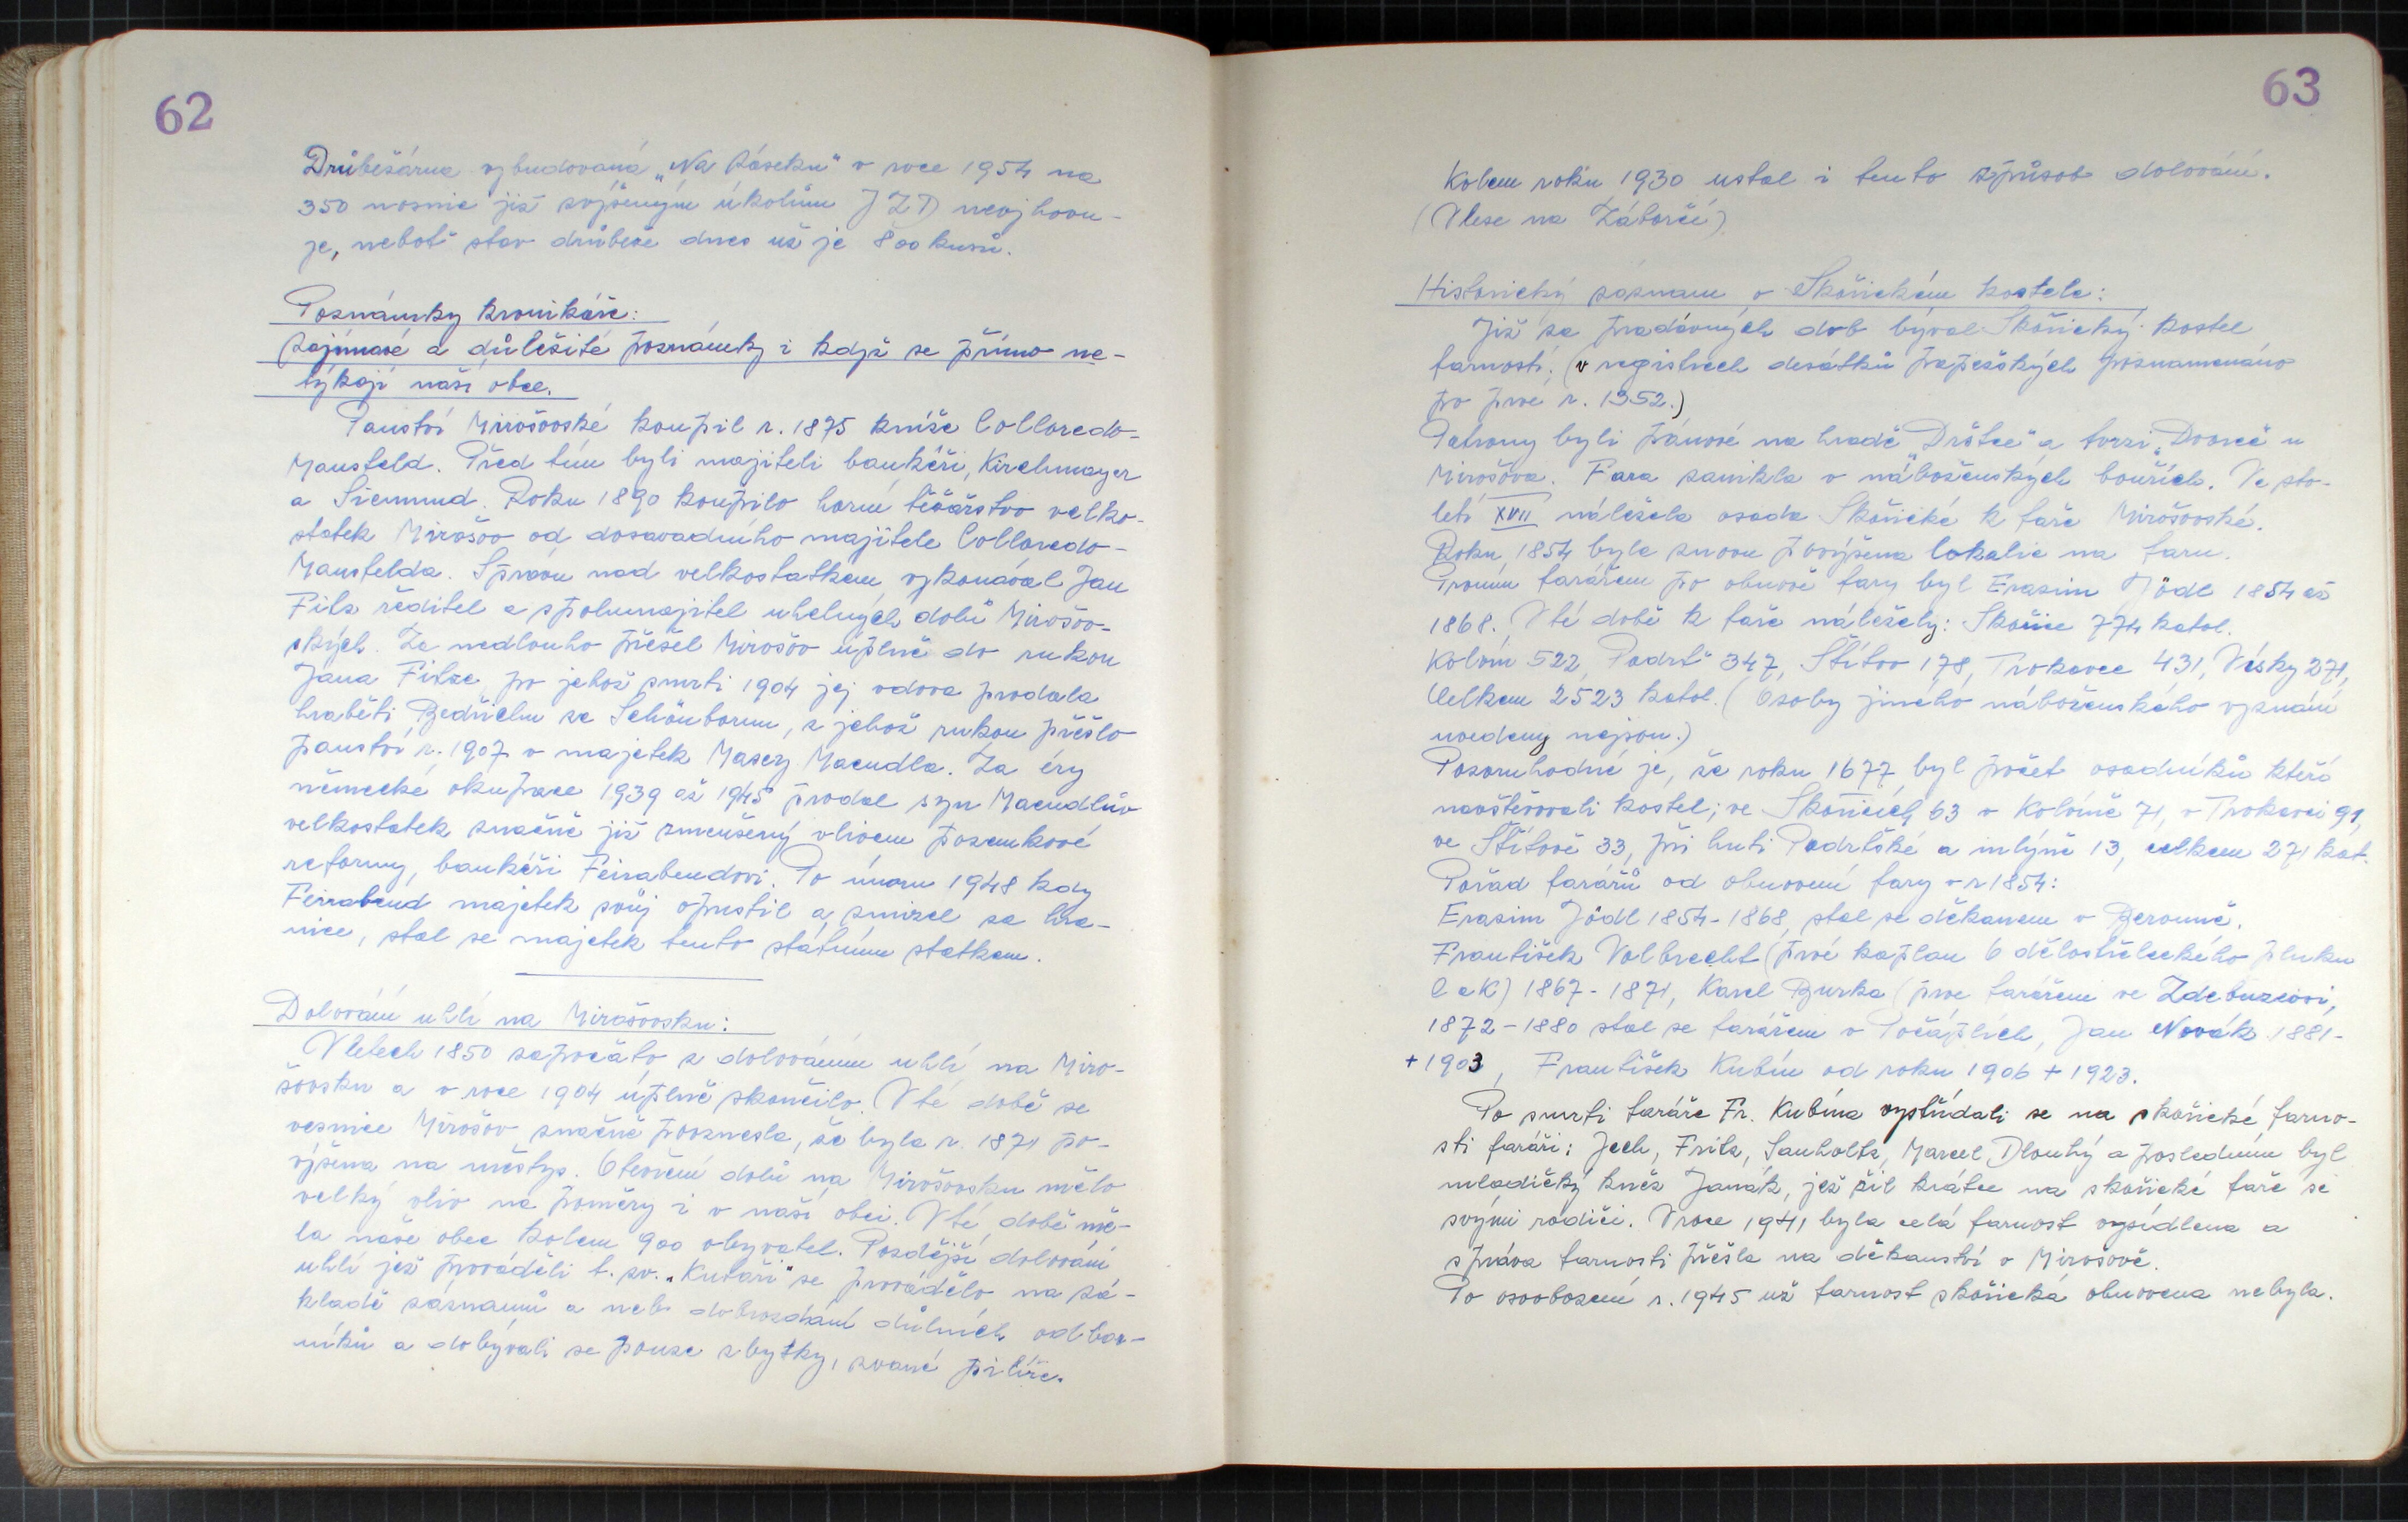 62
Drůbežárna vybudovaná „Na Páseku" v roce 1954 na
350 nosnic již zvýšeným úkolům JZD nevyhovu-
je, neboť stav drůbeže dnes už je 800 kusů.
Poznámky kronikáře:
Zajímavé a důležité poznámky i když se přímo ne-
týkají naší obce.
Panství Mirošovské koupil r. 1875 kníže Colloredo-
Mansfeld. Před tím byli majiteli bankéři, Kirchmayer
a Siemund. Roku 1890 koupilo horní těžařstvo velko-
statek Mirošov od dosavadního majitele Colloredo-
Mansfelda. Správu nad velkostatkem vykonával Jan
Fitz ředitel a spolumajitel uhelných dolů Mirošov-
ských. Za nedlouho přešel Mirošov úplně do rukou
Jana Fitze, po jehož smrti 1904 jej vdova prodala
hraběti Bedřichu ze Schönbornu, z jehož rukou přešlo
panství r. 1907 v majetek Maxy Maendla. Za éry
německé okupace 1939 až 1945 prodal syn Maendlův
velkostatek značně již zmenšený vlivem pozemkové
reformy, bankéři Feirabendovi. Po únoru 1948 kdy
Feirabend majetek svůj opustil a zmizel za hra-
nice, stal se majetek tento státním statkem.
Dolování uhlí na Mirošovsku:
V letech 1850 započato s dolováním uhlí na Miro-
šovsku a v roce 1904 úplně skončilo. V té době se
vesnice Mirošov značně povznesla, že byla r. 1871 po-
výšena na městys. Otevření dolů na Mirošovsku mělo
velký vliv na poměry i v naší obci. V té době mě-
la naše obec kolem 900 obyvatel. Pozdější dolování
uhlí jež prováděli t. zv. „Kutaři" se provádělo na zá-
kladě záznamů a neb dobrozdání důlních odbor-
níků a dobývali se pouze zbytky, zvané pilíře.
63
Kolem roku 1930 ustal i tento způsob dolování.
(V lese na Záborčí)
Historický záznam o Skořickém kostele:
Již za pradávných dob býval Skořický kostel
farností. (v registrech desátků papežských poznamenáno
po prve r. 1352.)
Patrony byli pánové na hradě „Drštce" a tvrzi „Dvorce u
Mirošova. Fara zanikla v náboženských bouřích. Ve sto-
letí XVII náležela osada Skořická k faře Mirošovské.
Roku 1854 byla znovu povýšena lokalie na faru.
Prvním farářem po obnově fary byl Erasim Jödl 1854 až
1868. V té době k faře náležely: Skořice 774 katol.
Kolvín 522, Padrť 347, Štítov 178, Trokavec 431, Vísky 271,
Celkem 2523 katol. (Osoby jiného náboženského vyznání
uvedeny nejsou.)
Pozoruhodné je, že roku 1677 byl počet osadníků kteří
navštěvovali kostel; ve Skořicích 63 v Kolvíně 71, v Trokavci 91,
ve Štítově 33, při huti Padrťské a mlýně 13, celkem 271 kat.
Pořad farářů od obnovení fary v r 1854:
Erasim Jödl 1854-1868, stal se děkanem v Berouně.
František Volbrecht (prvé kaplan 6 dělostřeleckého pluku
C a K) 1867-1871, Karel Burka (prve farářem ve Zdebuzovi,
1872-1880 stal se farářem v Počáplích, Jan Novák 1881-
+1903, František Kubín od roku 1906 + 1923.
Po smrti faráře Fr. Kubína vystřídali se na skořické farno-
sti faráři: Jech, Fritz, Sauholtz, Marcel Dlouhý a posledním byl
mladičký kněz Janák, jež žil krátce na skořické faře se
svými rodiči. V roce 1941 byla celá farnost vysídlena a
správa farnosti přešla na děkanství v Mirošově.
Po osvobození r. 1945 už farnost skořická obnovena nebyla.